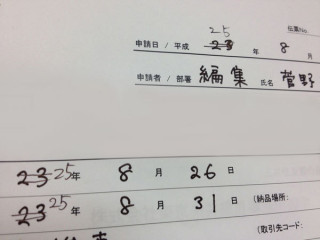 伝票No.
25
申請日 / 平成 23 年 8 月
申請者 / 部署 編集 氏名 菅野
23 25 年 8 月 26 日
23 25 年 8 月 31 日 (納品場所:
(取引先コード: